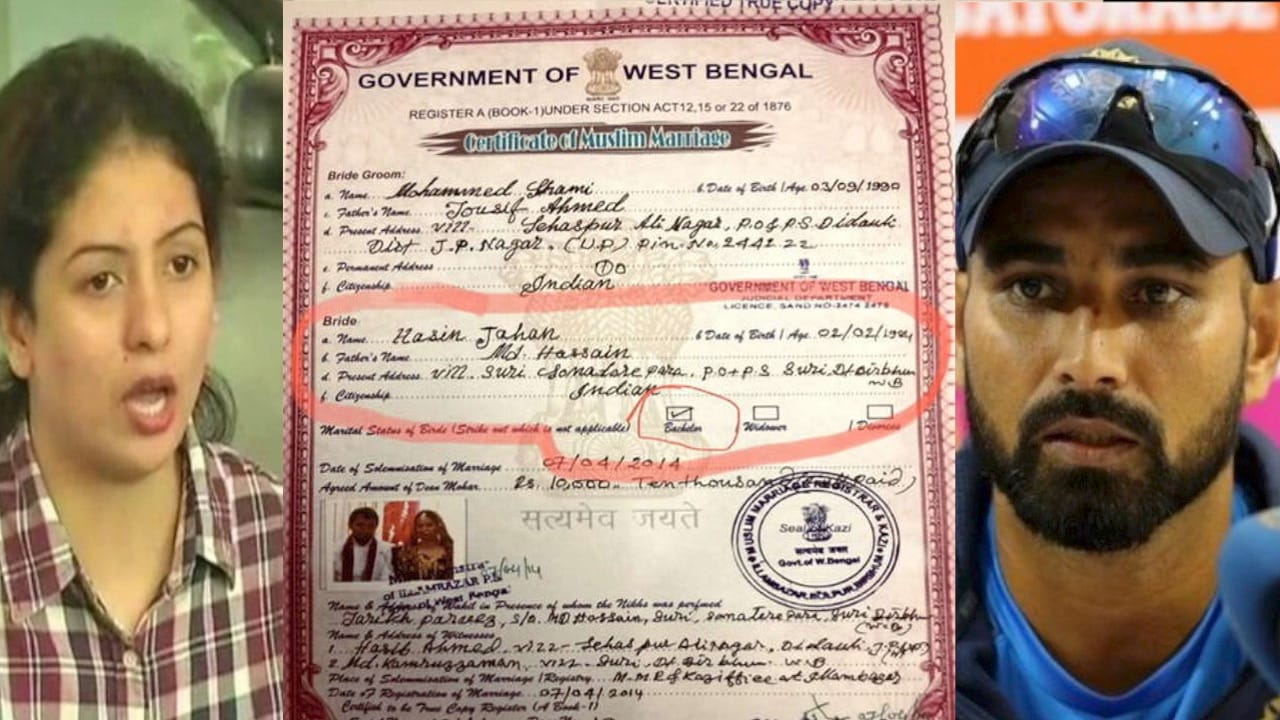 CERTIFIED TRUE COPY
GATORADE
GOVERNMENT OF WEST BENGAL
REGISTER A (BOOK-1)UNDER SECTION ACT12,15 or 22 of 1876
Certificate of Muslim Marriage
Bride Groom:
a. Name.... Mohammed Shami b. Date of Birth / Age. 03/09/1990
c. Father's Name Tousif Ahmed
d. Present Address vill. Sehaspur Ali Nagar, P.O & P.S Didauli
Dist J.P. Nagar. (U.P) Pin. No. 244222
e. Permanent Address Do
f. Citizenship Indian
GOVERNMENT OF WEST BENGAL
JUDICIAL DEPARTMENT
LICENCE, SAND NO-2474 2475
Bride
a. Name Hasin Jahan b. Date of Birth / Age. 02/02/19
b. Father's Name Md. Hassain
d. Present Address vill. Suri Sonatore para, P.O+P.S Suri, Dt Birbhum
W.B
f. Citizenship Indian
Marital Status of Birds (Strike out which is not applicable) Bachelor / Widower / Divorces
Date of Solemnisation of Marriage 07/04/2014
Agreed Amount of Dean Mohar Rs. 10,000 Ten thousand Paid)
सत्यमेव जयते
MUSLIM MARRIAGE REGISTRAR & KAZI
Seal of Kazi
सत्यमेव जयते
Govt.of W.Bengal
ILLAMBAZAR, BOLPUR, BIRBHUM
of ILLAMBAZAR P.S.
West Bengal
Name & Address Wakil in Presence of whom the Nikha was perfmed
Tarikh Pareez, S/o. MD Hossain, Suri, Sonatore para, Suri Birbhum
(W.B)
Name & Address of Witnesses
1. Hasib Ahmed vill- Sehaspur Alinagar, Didauli J.P.
2. Md. Kamruzzaman, vill- Suri, Dt Birbhum W.B
Place of Solemnisation of Marriage /Registry. M.M.R & Kazi office at Illambazar
Date OF Registration of Marriage 07/04/2014
Certified to be True Copy Register (A Book-1)